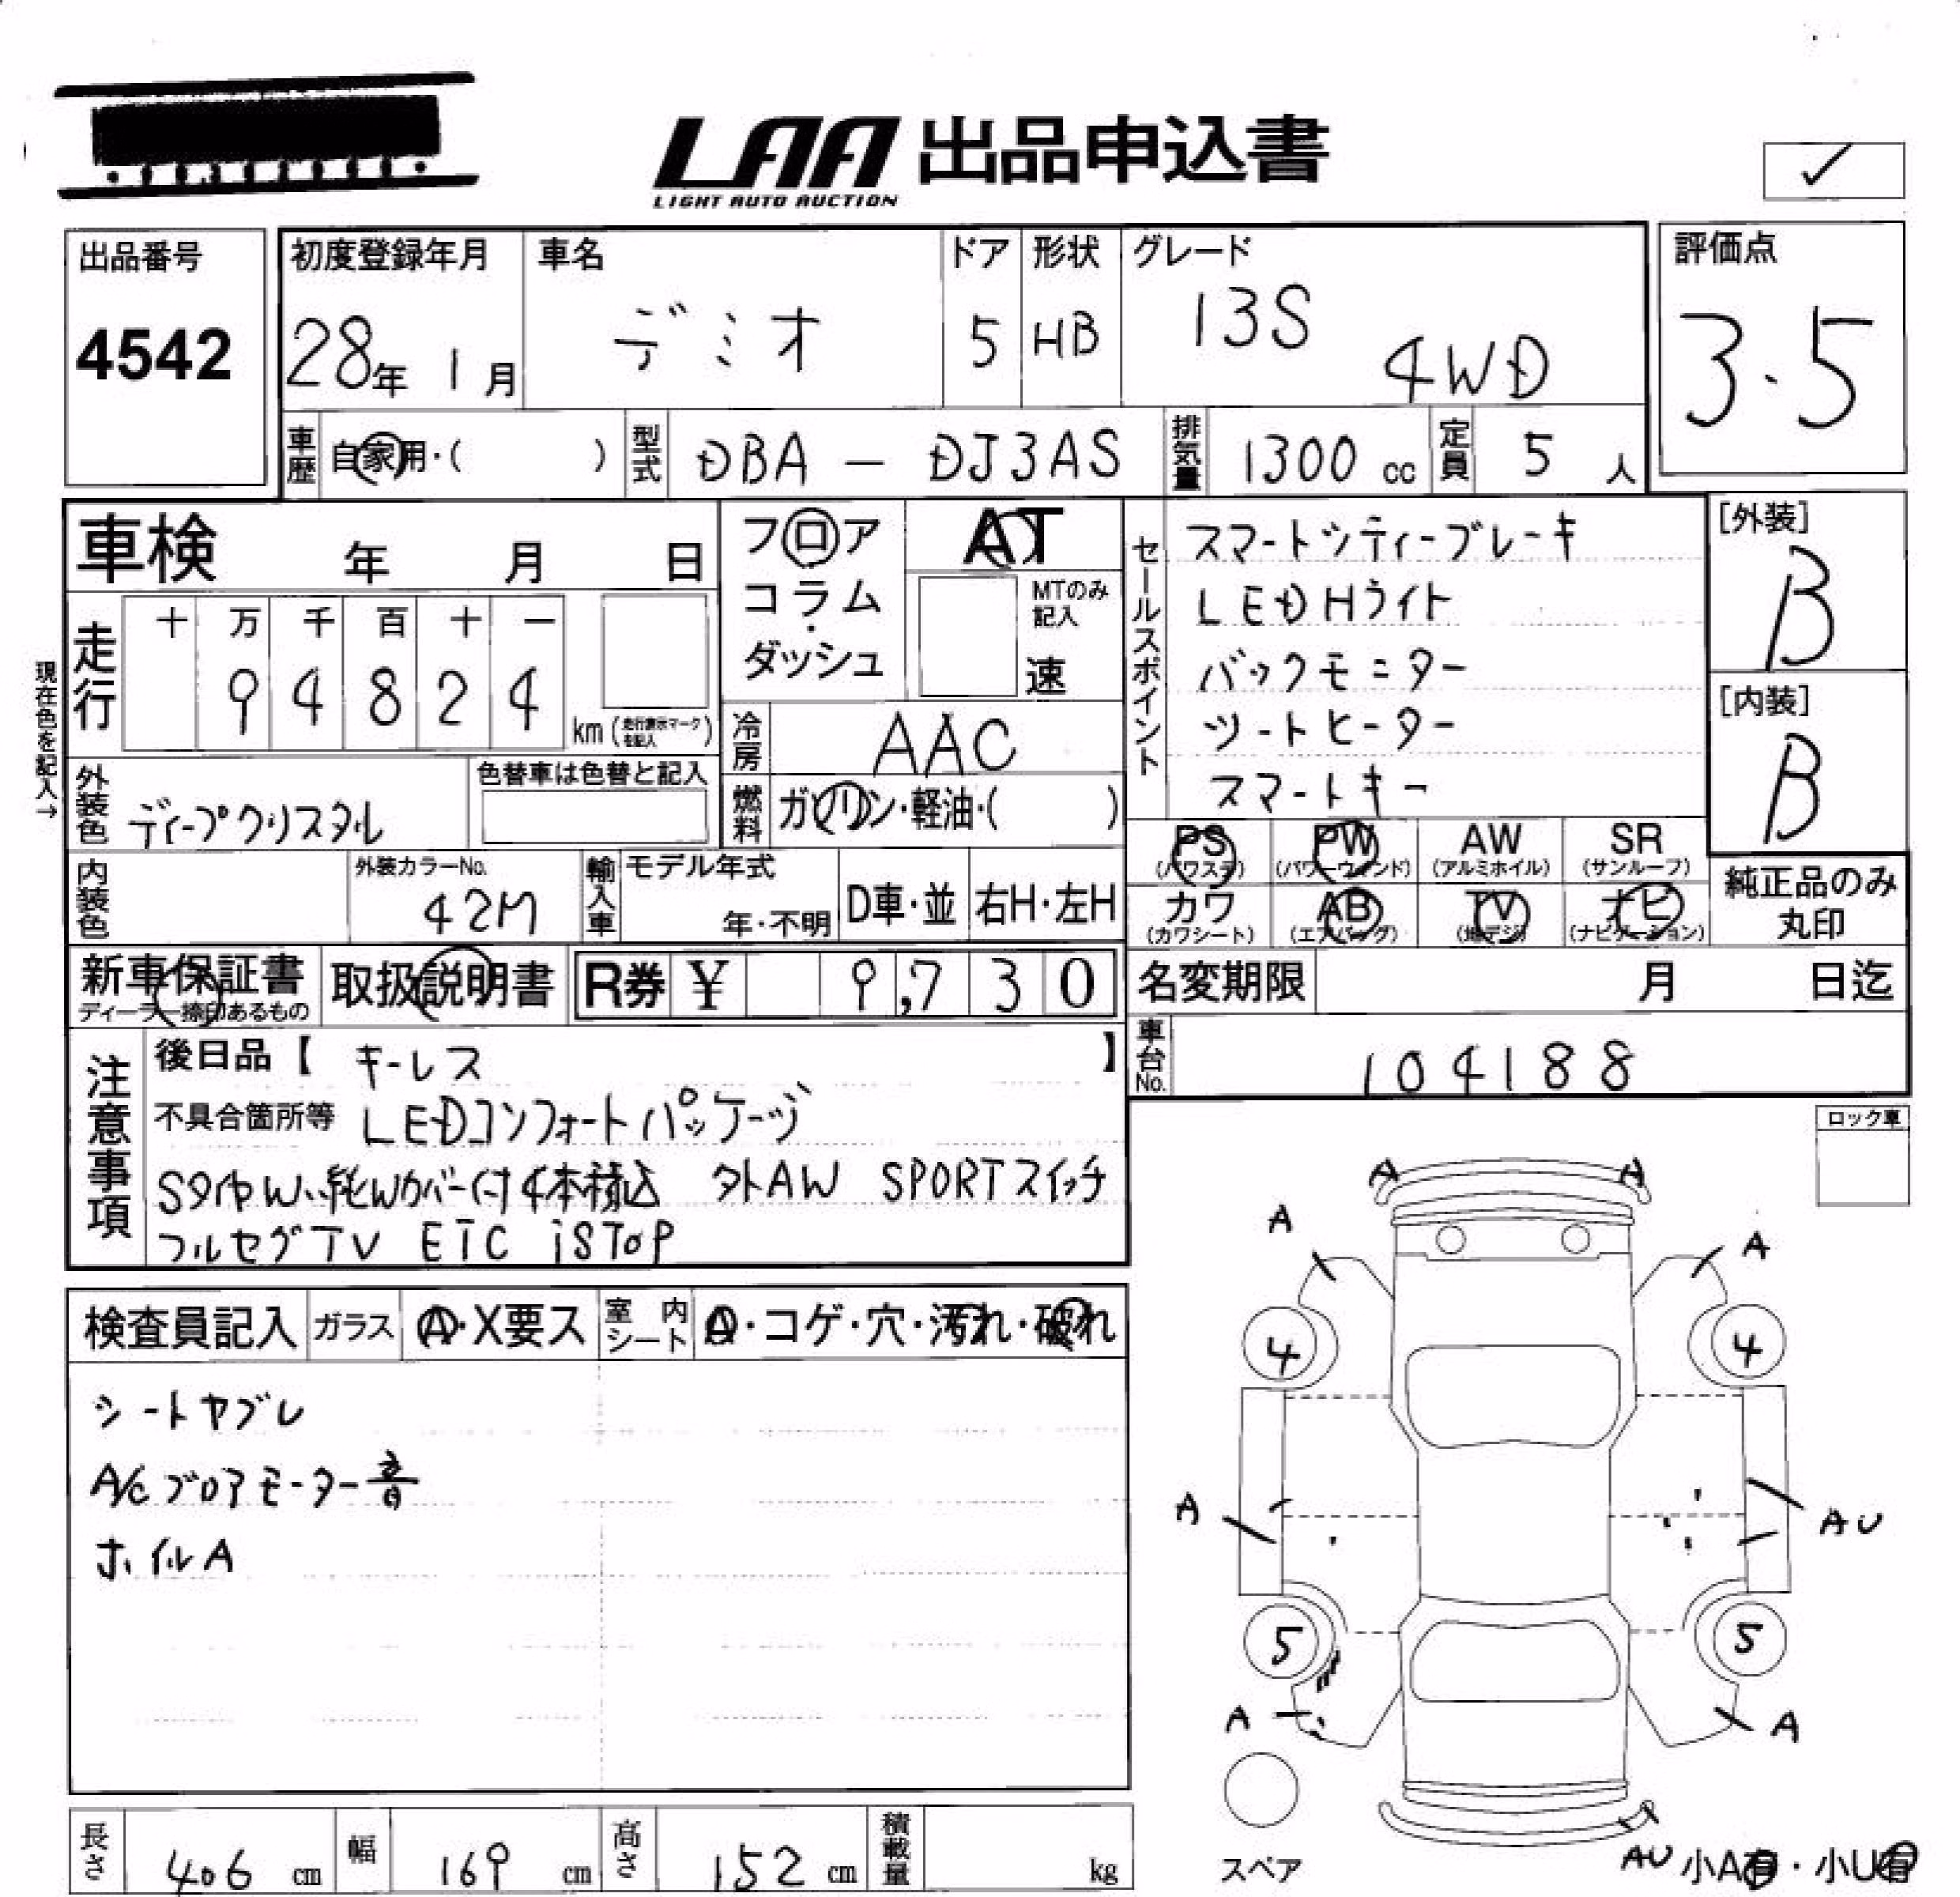 LAA 出品申込書
LIGHT AUTO AUCTION
✓
出品番号
4542
初度登録年月
28年 1月
車名
デミオ
ドア
5
形状
HB
グレード
13S
4WD
評価点
3.5
車歴 自家用・( )
型式 DBA - DJ3AS
排気量 1300 cc
定員 5 人
車検 年 月 日
フロア
コラム
・
ダッシュ
AT
MTのみ
記入
速
セールスポイント
スマートシティーブレーキ
LED Hライト
バックモニター
シートヒーター
スマートキー
[外装]
B
[内装]
B
現在色を記入→
走行
十 万 千 百 十 一
9 4 8 2 4
km (走行表示マークを記入)
冷房 AAC
燃料 ガソリン・軽油・( )
外装色 ディープクリスタル
色替車は色替と記入
内装色
外装カラーNo.
42M
輸入車
モデル年式
年・不明
D車・並
右H・左H
PS
(パワステ)
PW
(パワーウィンド)
AW
(アルミホイル)
SR
(サンルーフ)
カワ
(カワシート)
AB
(エアバッグ)
TV
(地デジ)
ナビ
(ナビゲーション)
純正品のみ
丸印
新車保証書
ディーラー捺印あるもの
取扱説明書
R券 ¥ 9,730
名変期限 月 日迄
車台No. 104188
注意事項
後日品【 キーレス 】
不具合箇所等 LEDコンフォートパッケージ
Sタイヤ W付4本積込 外AW SPORTスイッチ
フルセグTV ETC iSTOP
ロック車
検査員記入
ガラス A・X要ス
室内シート A・コゲ・穴・汚れ・破れ
シートヤブレ
A/Cブロアモーター音
ホイルA
A A
A A
4 4
A AU
5 5
A A
スペア
AU 小A有・小U有
長さ 406 cm
幅 169 cm
高さ 152 cm
積載量 kg